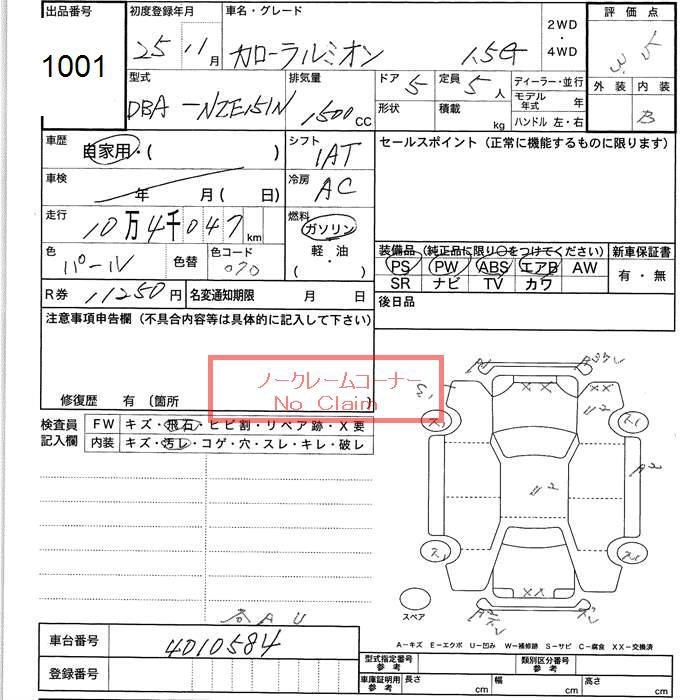 出品番号 初度登録年月 車名・グレード 2WD ・ 4WD 評価点
1001 25 11月 カローラルミオン 1.5G 3.5
外装 内装
B
型式 排気量 ドア 5 定員 5人 ディーラー・並行
DBA-NZE151N 1500CC 形状 積載 kg モデル年式 年
ハンドル 左・右
車歴 自家用・( ) シフト 1AT セールスポイント (正常に機能するものに限ります)
車検 年 月 ( 日) 冷房 AC
走行 10万4千047km 燃料 ガソリン・軽・油 ( )
色 パール 色替 色コード 070
装備品 (純正品に限り○をつけてください) 新車保証書
PS PW ABS エアB AW 有・無
SR ナビ TV カワ
R券 11250円 名変通知期限 月 日 後日品
注意事項申告欄 (不具合内容等は具体的に記入して下さい)
ノークレームコーナー
No Claim
修復歴 有 〔箇所
検査員記入欄 FW キズ・飛石・ヒビ割・リペア跡・X要
内装 キズ・汚レ・コゲ・穴・スレ・キレ・破レ
XX XX
A2
XX
スペア
A-キズ E-エクボ U-凹み W-補修跡 S-サビ C-腐食 XX-交換済
車台番号 4010584
登録番号
型式指定番号 参考 類別区分番号 参考
車庫証明用 参考 長さ cm 幅 cm 高さ cm